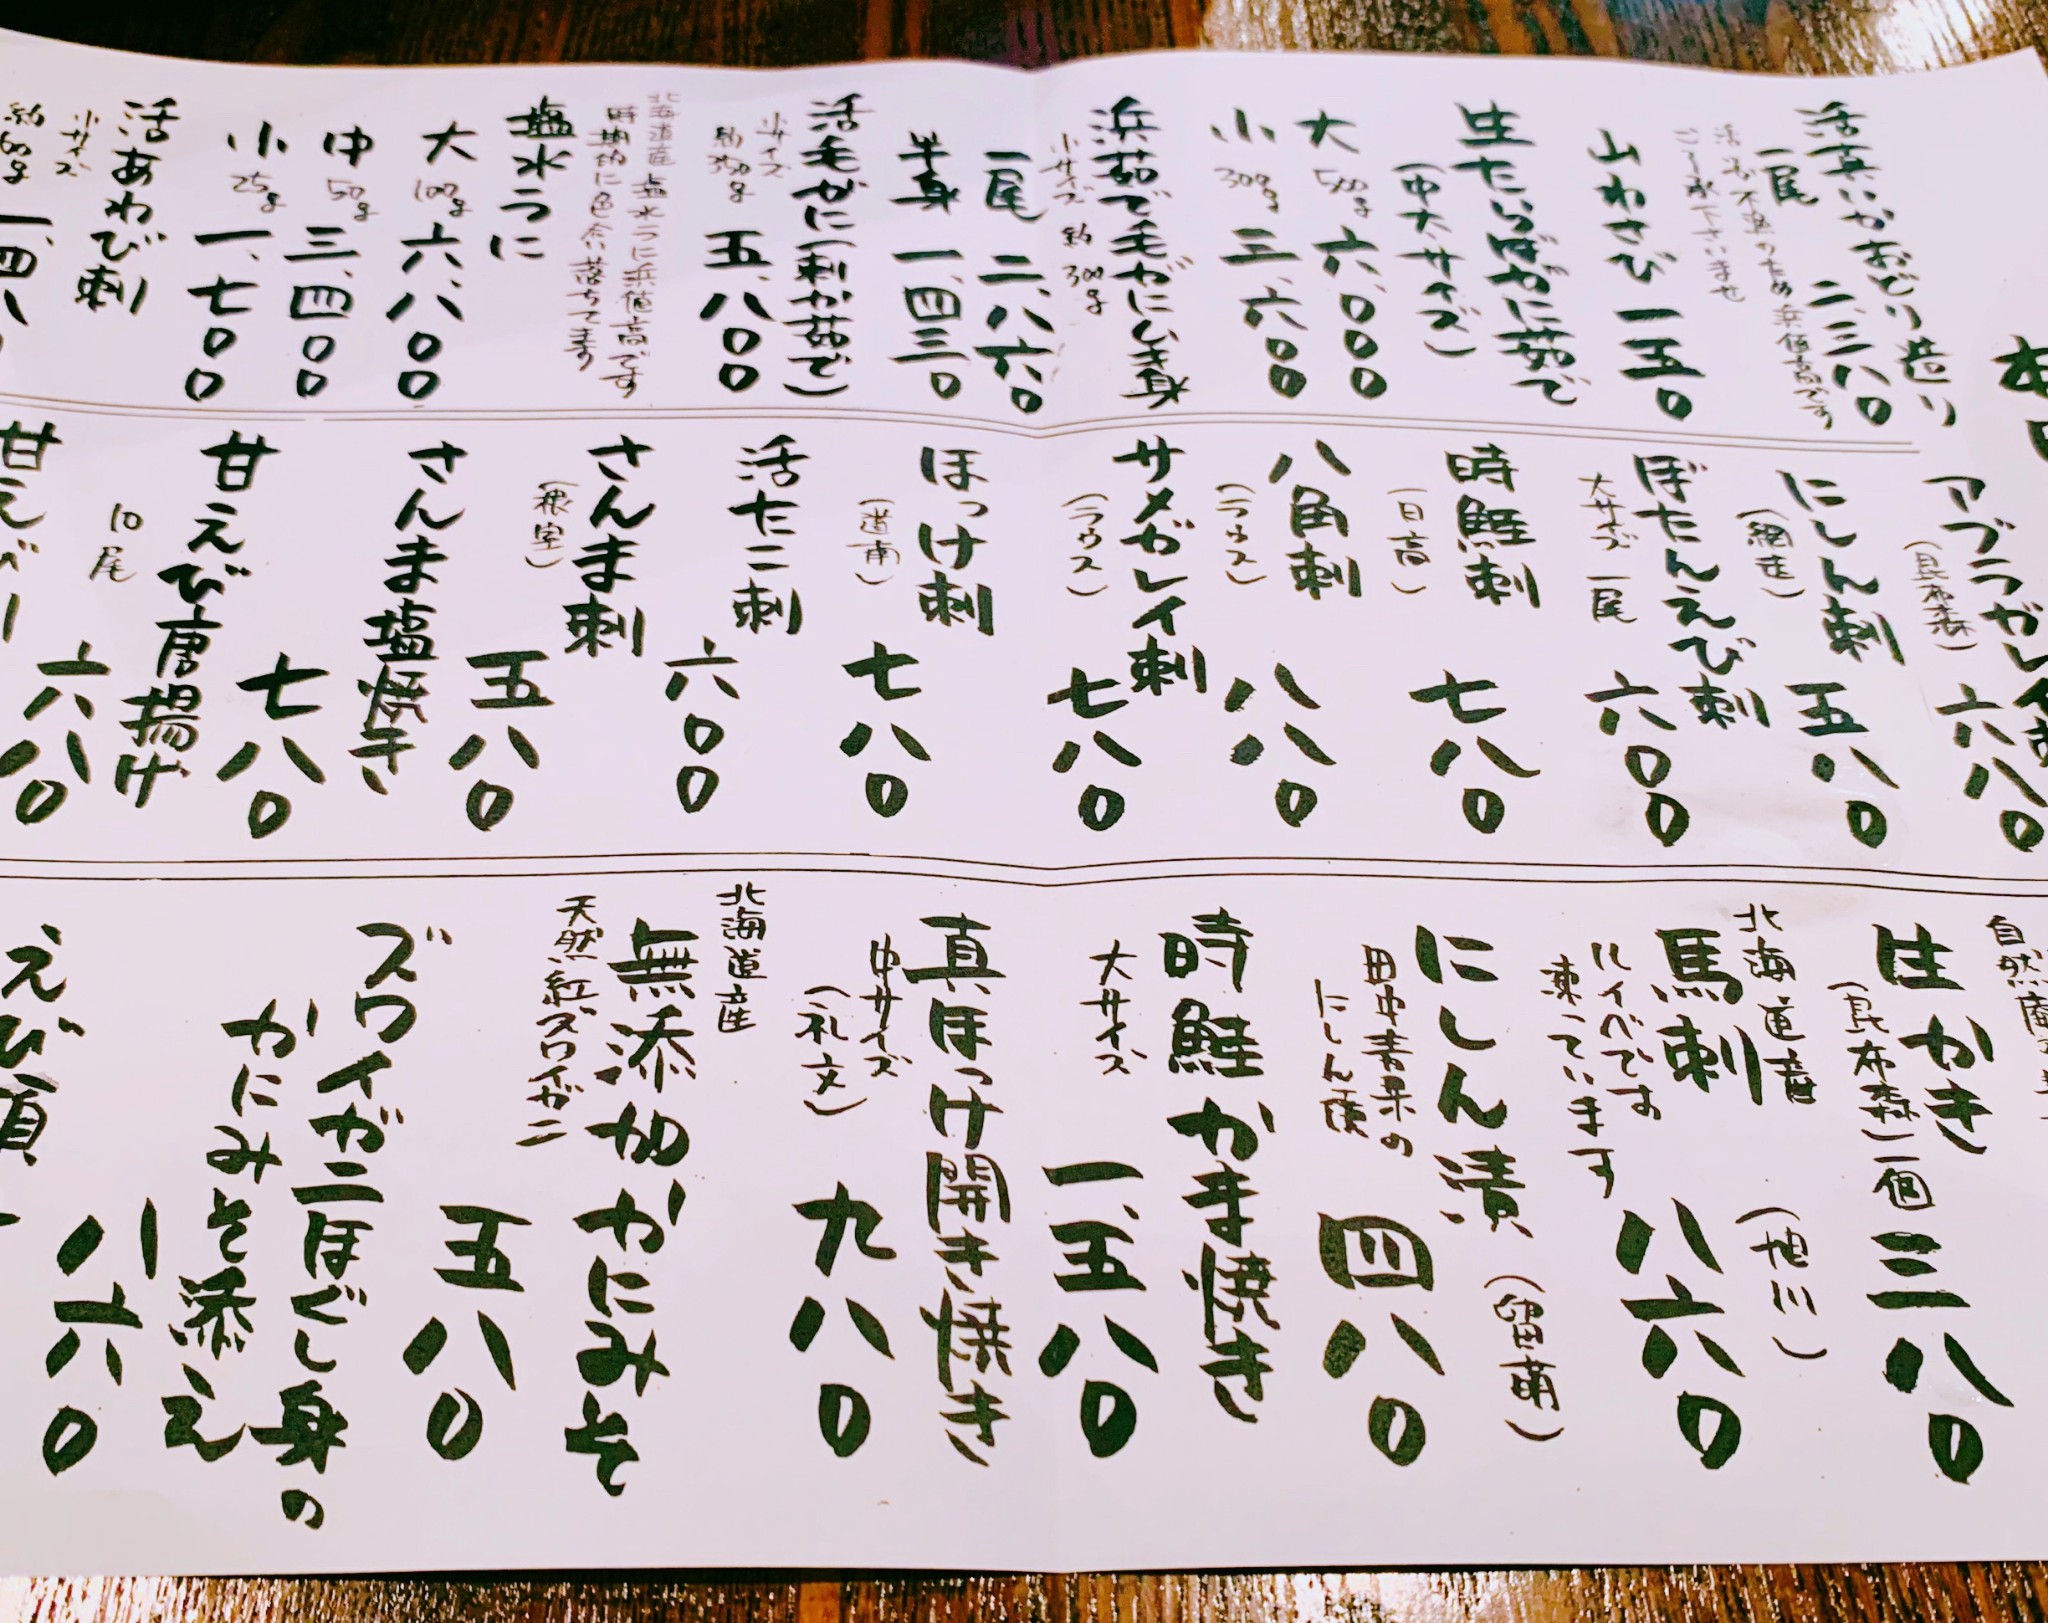 活真いかおどり造り
一尾 二、三八〇
活いか不漁のため浜値高です
ご了承下さいませ
山わさび 一五〇
生たらばがに茹で
(中大サイズ)
大 500g 六、〇〇〇
小 300g 三、六〇〇
浜茹で毛がにむき身
小サイズ 約300g
一尾 二、八六〇
半身 一、四三〇
活毛がに(刺か茹で)
小サイズ
約350g 五、八〇〇
北海道産 塩水うに浜値高です
時期的に色合い落ちてます
塩水うに
大 100g 六、八〇〇
中 50g 三、四〇〇
小 25g 一、七〇〇
活あわび刺
小サイズ
約60g 一、四八
アブラガレイ
(昆布森) 六八〇
にしん刺
(網走) 五八〇
ぼたんえび刺
大サイズ 一尾 六〇〇
時鮭刺
(日高) 七八〇
八角刺
(ラウス) 八八〇
サメガレイ刺
(ラウス) 七八〇
ほっけ刺
(道南) 七八〇
活たこ刺
六〇〇
さんま刺
(根室) 五八〇
さんま塩焼き
七八〇
甘えび唐揚げ
10尾 六八〇
甘え
自然
生かき
(昆布森)一個 三八〇
北海道産
馬刺 (旭川)
ルイベです
凍っています 八六〇
にしん漬 (留萌)
田中青果の
にしん漬 四八〇
時鮭かま焼き
大サイズ 一、五八〇
真ほっけ開き焼き
中サイズ
(礼文) 九八〇
北海道産
無添加かにみそ
天然紅ズワイガニ 五八〇
ズワイガニほぐし身の
かにみそ添え
八六〇
えび